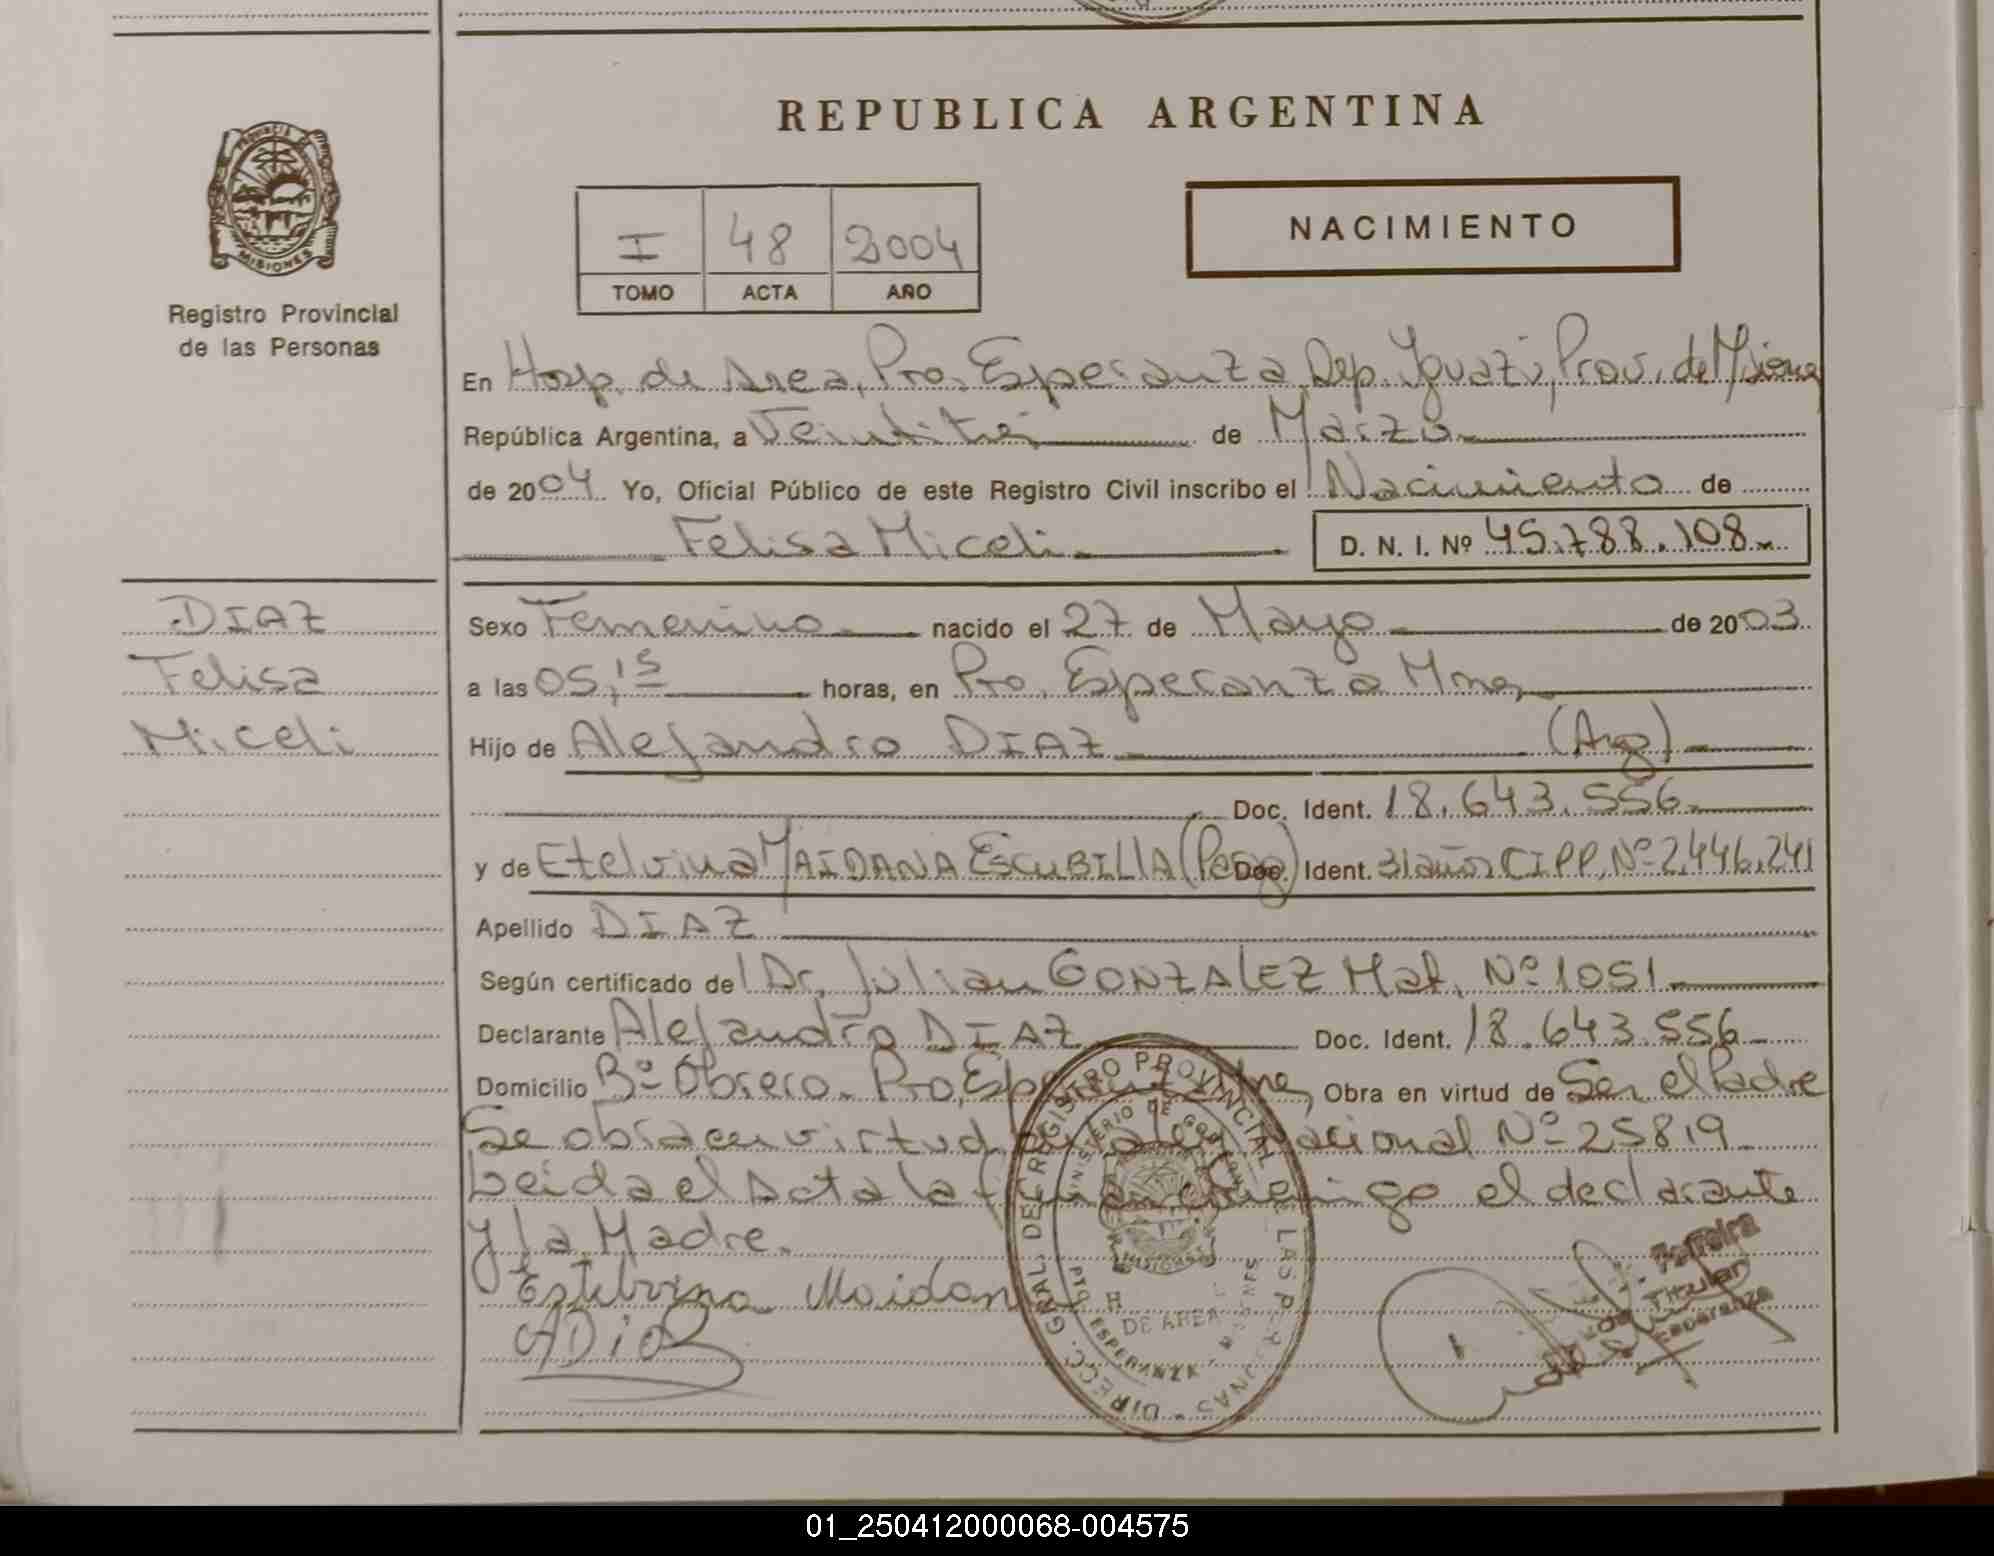 REPUBLICA ARGENTINA
MISIONES
Registro Provincial
de las Personas
I 48 2004
TOMO ACTA AÑO
NACIMIENTO
En Hosp. de Area, Pto. Esperanza, Dep. Iguazú, Prov. de Misiones
República Argentina, a Veintitrés de Marzo
de 2004 Yo, Oficial Público de este Registro Civil inscribo el Nacimiento de
Felisa Miceli D. N. I. Nº 45.788.108
DIAZ
Felisa
Miceli
Sexo Femenino nacido el 27 de Mayo de 2003
a las 05,15 horas, en Pto. Esperanza Mnes,
Hijo de Alejandro DIAZ (Arg)
Doc. Ident. 18.643.556
y de Etelvina MAIDANA ESCUBILLA (Parag) Doc. Ident. 31 años CIPP. Nº 2,446.241
Apellido DIAZ
Según certificado del Dr. Julian GONZALEZ Mat. Nº 1051
Declarante Alejandro DIAZ Doc. Ident. 18.643.556
Domicilio Bº Obrero. Pto. Esperanza Mnes, Obra en virtud de Ser el Padre
Se obra en virtud de la ley Nacional Nº 25819
Leida el acta la firman conmigo el declarante
y la Madre.
Estelvina Maidana
ADiaz
DIRECC. GRAL. DEL REGISTRO PROVINCIAL DE LAS PERSONAS
MINISTERIO DE GOBIERNO
MISIONES
DE AREA
PTO ESPERANZA
Ferreira
Titular
Esperanza
01_250412000068-004575